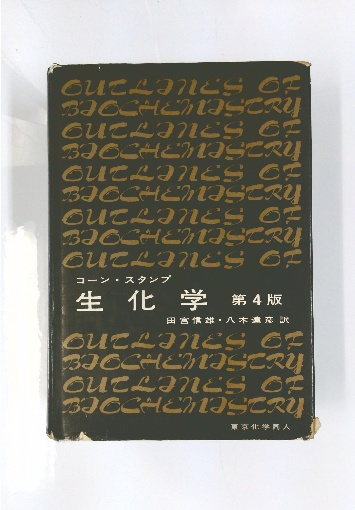 OUTLINES OF
BIOCHEMISTRY
OUTLINES OF
BIOCHEMISTRY
OUTLINES OF
BIOCHEMISTRY
OUTLINES OF
BIOCHEMISTRY
OUTLINES OF
コーン・スタンプ
生化学 第4版
田宮信雄・八木達彦 訳
OUTLINES OF
BIOCHEMISTRY
OUTLINES OF
BIOCHEMISTRY
東京化学同人